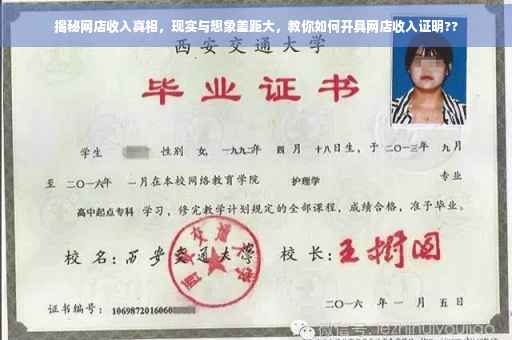 揭秘网店收入真相，现实与想象差距大，教你如何开具网店收入证明??
西安交通大学
毕业证书
学生 性别 女, 一九九二年 四月 十八日生, 于二〇一三年 九月
至 二〇一六年 一月在本校网络教育学院 护理学 专业
高中起点专科 学习, 修完教学计划规定的全部课程, 成绩合格, 准予毕业。
校名: 西安交通大学 校长: 王树国
西安交通大学
证书编号: 1069872016060 二〇一六年 一月五日
微信号: jiezhihuiyoujiao